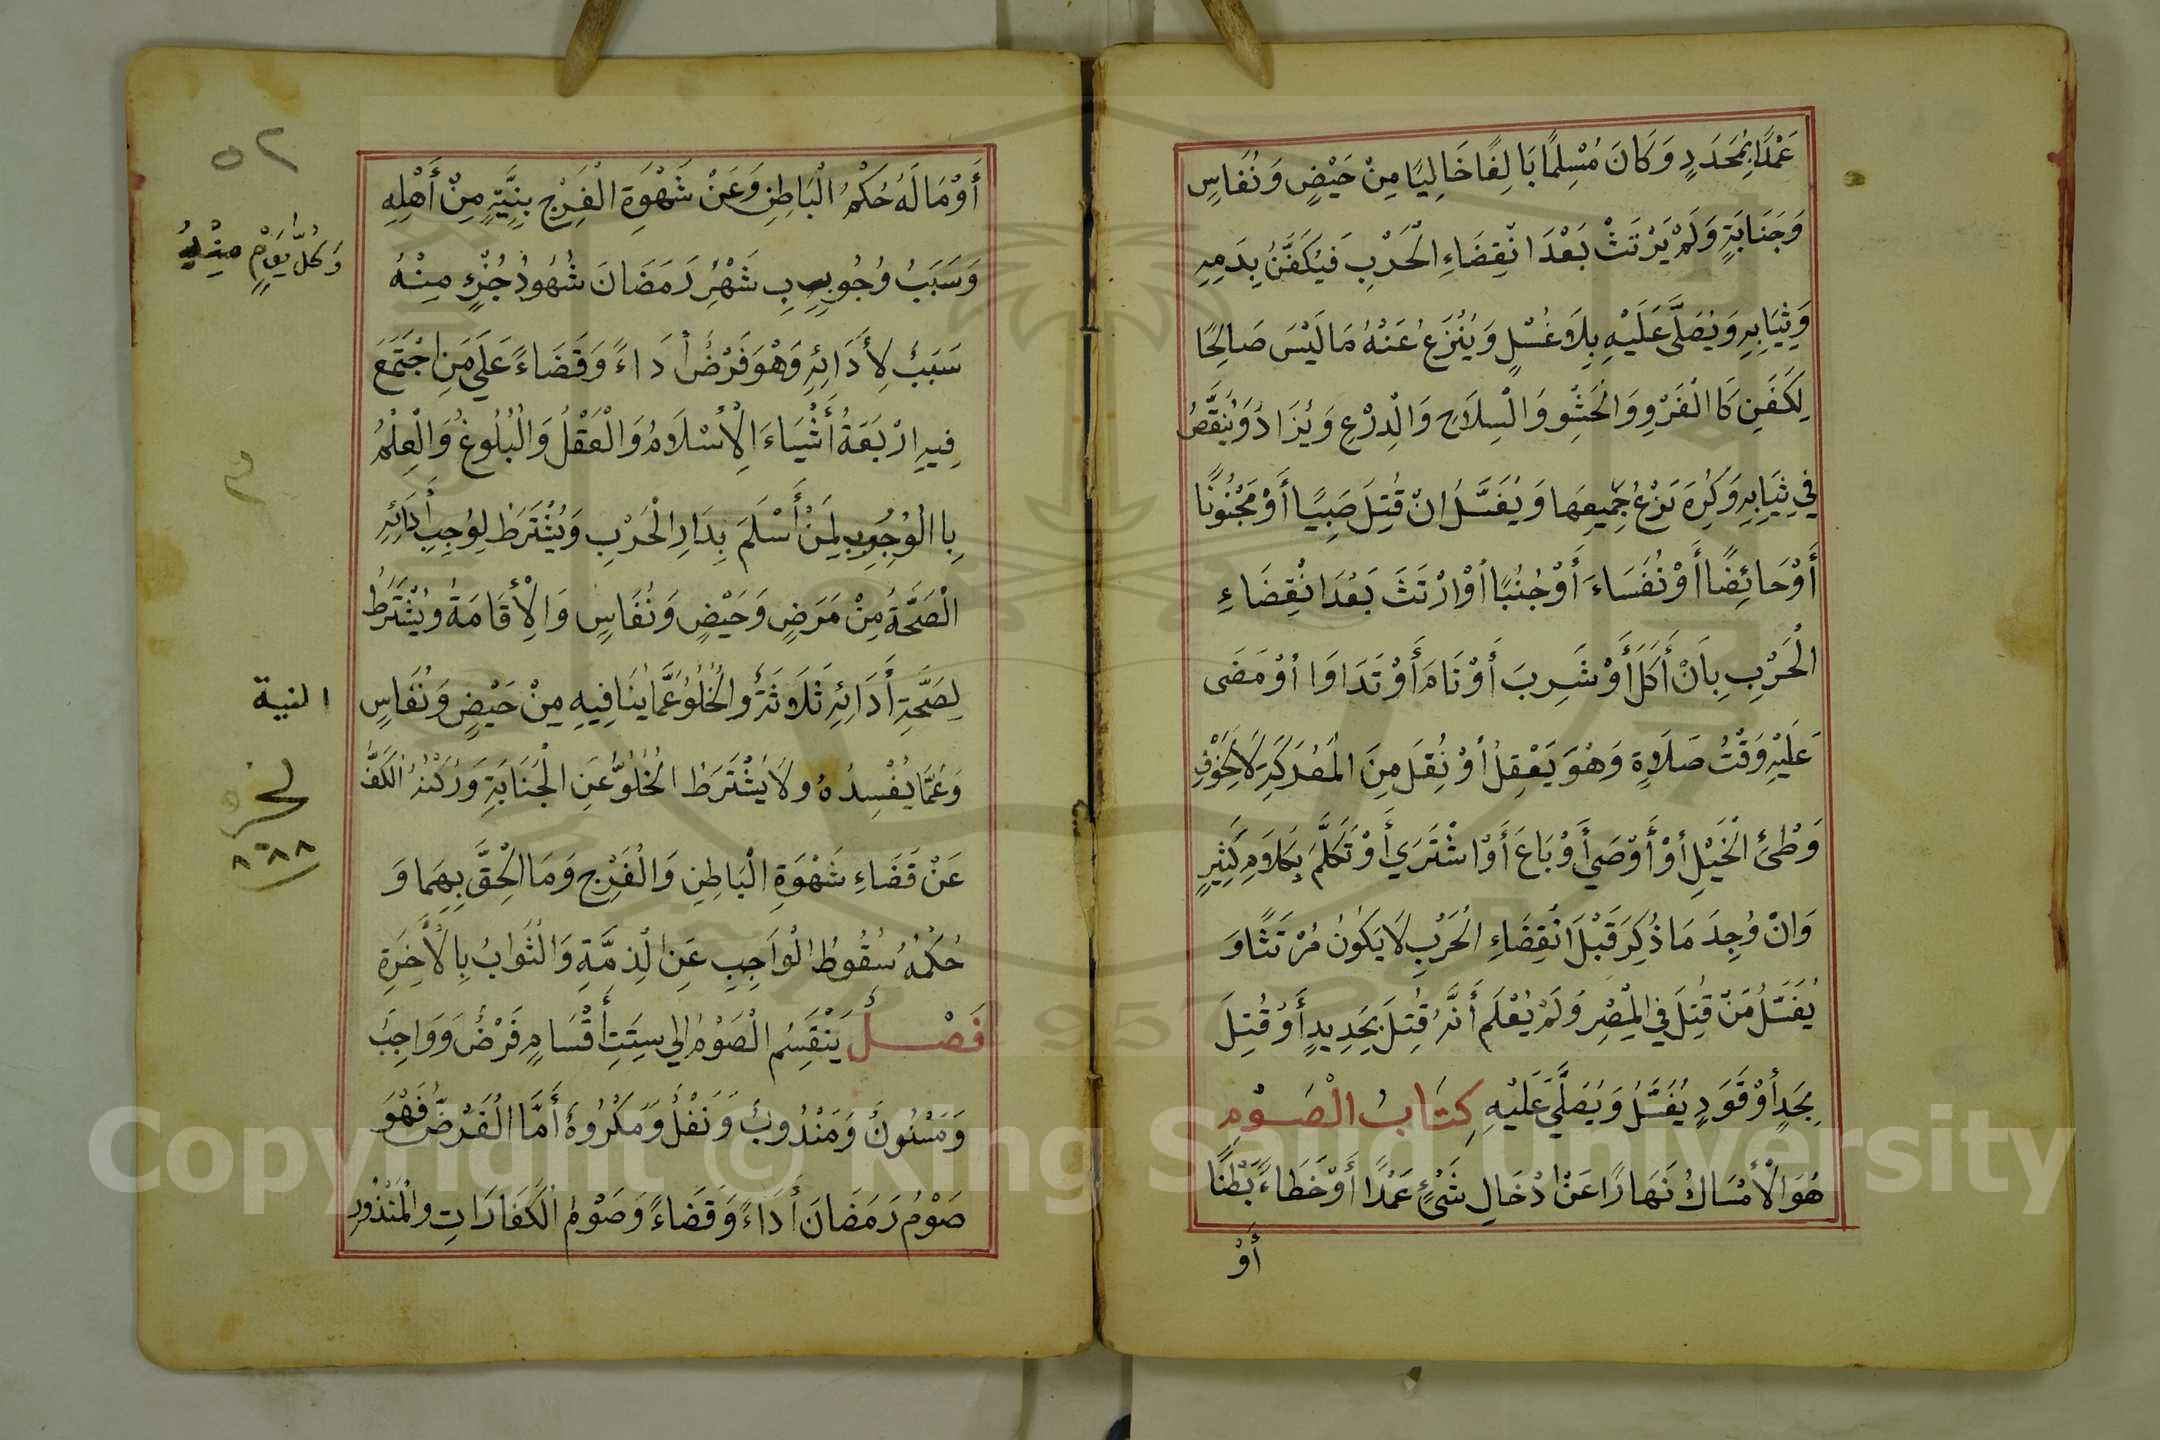 عَمْدًا بِمُحَدَدٍ وَكَانَ مُسْلِمًا بَالِغًا خَالِيًا مِنْ حَيْضٍ وَنُفَاسٍ
وَجَنَابَةٍ وَلَمْ يَرْتَثْ بَعْدَ انْقِضَاءِ الْحَرْبِ فَيُكَفَّنُ بِدَمِهِ
وَثِيَابِهِ وَيُصَلَّى عَلَيْهِ بِلَا غُسْلٍ وَيُنْزَعُ عَنْهُ مَا لَيْسَ صَالِحًا
لِكَفَنٍ كَا الْفَرْوِ وَالْحَشْوِ وَالْسِلَاحِ وَالْدِرْعِ وَيُزَادُ وَيُنَقَّصُ
فِي ثِيَابِهِ وَكُرِهَ نَزْعُ جَمِيعِهَا وَيُغَسَّلُ انْ قُتِلَ صَبِيًا أَوْ مَجْنُونًا
أَوْ حَائِضًا أَوْ نُفَسَاءَ أَوْ جُنُبًا اوْ ارْتَثَ بَعْدَ انْقِضَاءِ
الْحَرْبِ بِاَنْ أَكَلَ أَوْ شَرِبَ أَوْ نَامَ أَوْ تَدَاوَا اوْ مَضَى
عَلَيْهِ وَقْتُ صَلَاةٍ وَهُوَ يَعْقِلُ اوْ نُقِلَ مِنَ الْمَعْرَكَةِ لَا لِخَوْفِ
وَطْئِ الْخَيْلِ أوْ أَوْصَى أَوْ بَاعَ أَوْ اشْتَرَى أَوْ تَكَلَّمَ بِكَلَامٍ كَثِيرٍ
وَانْ وُجِدَ مَا ذُكِرَ قَبْلَ انْقِضَاءِ الْحَرْبِ لَا يَكُونُ مُرْتَثًا وَ
يُغَسَّلُ مَنْ قُتِلَ فِي الْمِصْرِ وَلَمْ يُعْلَم أَنَّهُ قُتِلَ بِحَدِيدٍ أَوْ قُتِلَ
بِحَدٍ أَوْ قَوَدٍ يُغَسَّلُ وَيُصَلَّى عَلَيْهِ كِتَابُ الْصَوْمِ
هُوَ الْأمْسَاكُ نَهَارًا عَنْ ادْخَالِ شَيْءٍ عَمْدًا أَوْ خَطَاءً بَطْنًا
أَوْ
٥٢
أَوْ مَا لَهُ حُكْمُ الْبَاطِنِ وَعَنْ شَهْوَةِ الْفَرْجِ بِنِيَّةٍ مِنْ أَهْلِهِ
وَسَبَبُ وُجُوبِ شَهْرِ رَمَضَانَ شُهُودُ جُزْءٍ مِنْهُ
وَكُلُّ يَوْمٍ مِنْهُ
سَبَبُ لِأَدَائِهِ وَهُوَ فَرْضُ ادَاءً وَقَضَاءً عَلَى مَنِ اجْتَمَعَ
فِيهِ ارْبَعَةُ أَشْيَاءَ الْأسْلَامُ وَالْعَقْلُ وَالْبُلُوغُ وَالْعِلْمُ
بِا الْوُجُوبِ لِمَنْ أَسْلَمَ بِدَارِ الْحَرْبِ وَيُشْتَرَطُ لِوُجِبِ أَدَائِهِ
الْصَحَّةُ مِنْ مَرَضٍ وَحَيْضٍ وَنُفَاسٍ وَالْأقَامَةُ وَيُشْتَرَطُ
لِصَحَّةِ أَدَائِهِ ثَلَاثَةُ وَالْخُلُوُ عَمَّا يُنَافِيهِ مِنْ حَيْضٍ وَنُفَاسٍ
النية
وَعَمَّا يُفْسِدُهُ وَلَا يَشْتَرَطُ الْخُلُوُّ عَنِ الْجُنَابَةِ وَرُكْنُهُ الْكَفُّ
عَنْ قَضَاءِ شَهْوَةِ الْبَاطِنِ وَالْفَرْجِ وَمَا الْحِقَّ بِهِمَا وَ
حُكْمُهُ سُقُوطُ الْوَاجِبِ عَنِ الْذِمَّةِ وَالْثَوَابُ بِالْأَخِرَةِ
فَصْلُ يَنْقَسِمُ الْصَوْمُ الي سِتَةِ أَقْسَامٍ فَرْضُ وَوَاجِبُ
وَمَسْنُونُ وَمَنْدُوبُ وَنَفْلُ وَمَكْرُوهُ أَمَّا الْفَرْضُ فَهْوَ
صَوْمُ رَمَضَانَ أَدَاءً وَقَضَاءً وَصَوْمُ الْكَفَارَاتِ وَالْمَنْذُورِ
Copyright © King Saud University
1957